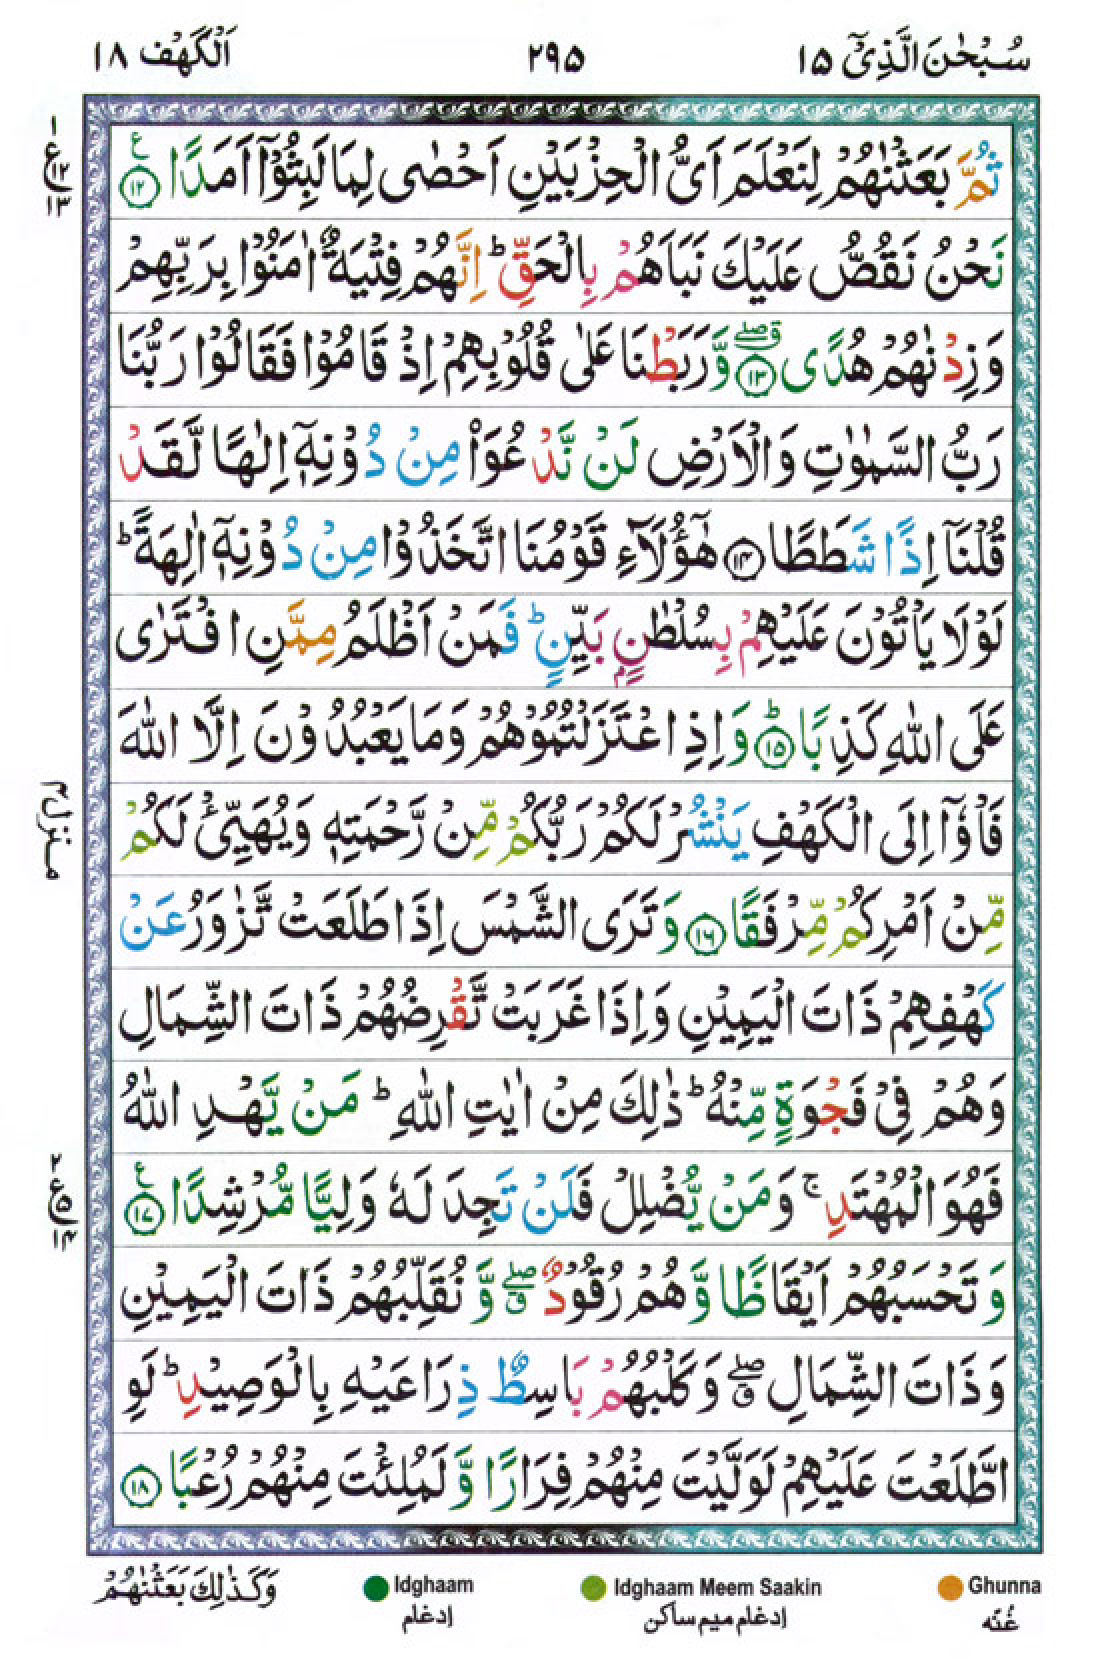 سُبْحٰنَ الَّذِیْۤ ۱۵
۲۹۵
اَلْكَهْف ۱۸
ثُمَّ بَعَثْنٰهُمْ لِنَعْلَمَ اَیُّ الْحِزْبَیْنِ اَحْصٰى لِمَا لَبِثُوْۤا اَمَدًا ۱۲ ع
نَحْنُ نَقُصُّ عَلَیْكَ نَبَاَهُمْ بِالْحَقِّ ؕ اِنَّهُمْ فِتْیَةٌ اٰمَنُوْا بِرَبِّهِمْ
وَزِدْنٰهُمْ هُدًى ۱۳ ۖق وَّرَبَطْنَا عَلٰى قُلُوْبِهِمْ اِذْ قَامُوْا فَقَالُوْا رَبُّنَا
رَبُّ السَّمٰوٰتِ وَالْاَرْضِ لَنْ نَّدْعُوَا۟ مِنْ دُوْنِهٖۤ اِلٰهًا لَّقَدْ
قُلْنَاۤ اِذًا شَطَطًا ۱۴ هٰۤؤُلَآءِ قَوْمُنَا اتَّخَذُوْا مِنْ دُوْنِهٖۤ اٰلِهَةً ؕ
لَوْلَا یَاْتُوْنَ عَلَیْهِمْ بِسُلْطٰنٍۭ بَیِّنٍ ؕ فَمَنْ اَظْلَمُ مِمَّنِ افْتَرٰى
عَلَى اللّٰهِ كَذِبًا ۱۵ ؕ وَاِذِ اعْتَزَلْتُمُوْهُمْ وَمَا یَعْبُدُوْنَ اِلَّا اللّٰهَ
فَاْوٗۤا اِلَى الْكَهْفِ یَنْشُرْ لَكُمْ رَبُّكُمْ مِّنْ رَّحْمَتِهٖ وَیُهَیِّئْ لَكُمْ
مِّنْ اَمْرِكُمْ مِّرْفَقًا ۱۶ وَتَرَى الشَّمْسَ اِذَا طَلَعَتْ تَّزٰوَرُ عَنْ
كَهْفِهِمْ ذَاتَ الْیَمِیْنِ وَاِذَا غَرَبَتْ تَّقْرِضُهُمْ ذَاتَ الشِّمَالِ
وَهُمْ فِیْ فَجْوَةٍ مِّنْهُ ؕ ذٰلِكَ مِنْ اٰیٰتِ اللّٰهِ ؕ مَنْ یَّهْدِ اللّٰهُ
فَهُوَ الْمُهْتَدِ ۚ وَمَنْ یُّضْلِلْ فَلَنْ تَجِدَ لَهٗ وَلِیًّا مُّرْشِدًا ۱۷ ع
وَتَحْسَبُهُمْ اَیْقَاظًا وَّهُمْ رُقُوْدٌ ۖق وَّنُقَلِّبُهُمْ ذَاتَ الْیَمِیْنِ
وَذَاتَ الشِّمَالِ ۖق وَكَلْبُهُمْ بَاسِطٌ ذِرَاعَیْهِ بِالْوَصِیْدِ ؕ لَوِ
اطَّلَعْتَ عَلَیْهِمْ لَوَلَّیْتَ مِنْهُمْ فِرَارًا وَّلَمُلِئْتَ مِنْهُمْ رُعْبًا ۱۸
۱
ع۱۲
۱۳
منزل ۴
۲
ع۵
۱۴
وَكَذٰلِكَ بَعَثْنٰهُمْ
Idghaam
ادغام
Idghaam Meem Saakin
ادغام میم ساکن
Ghunna
غُنّه